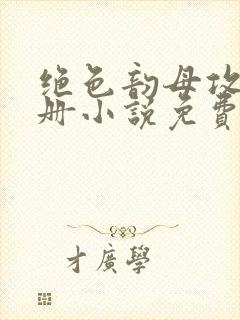 绝色韵母攻
册小说免費
才廣學